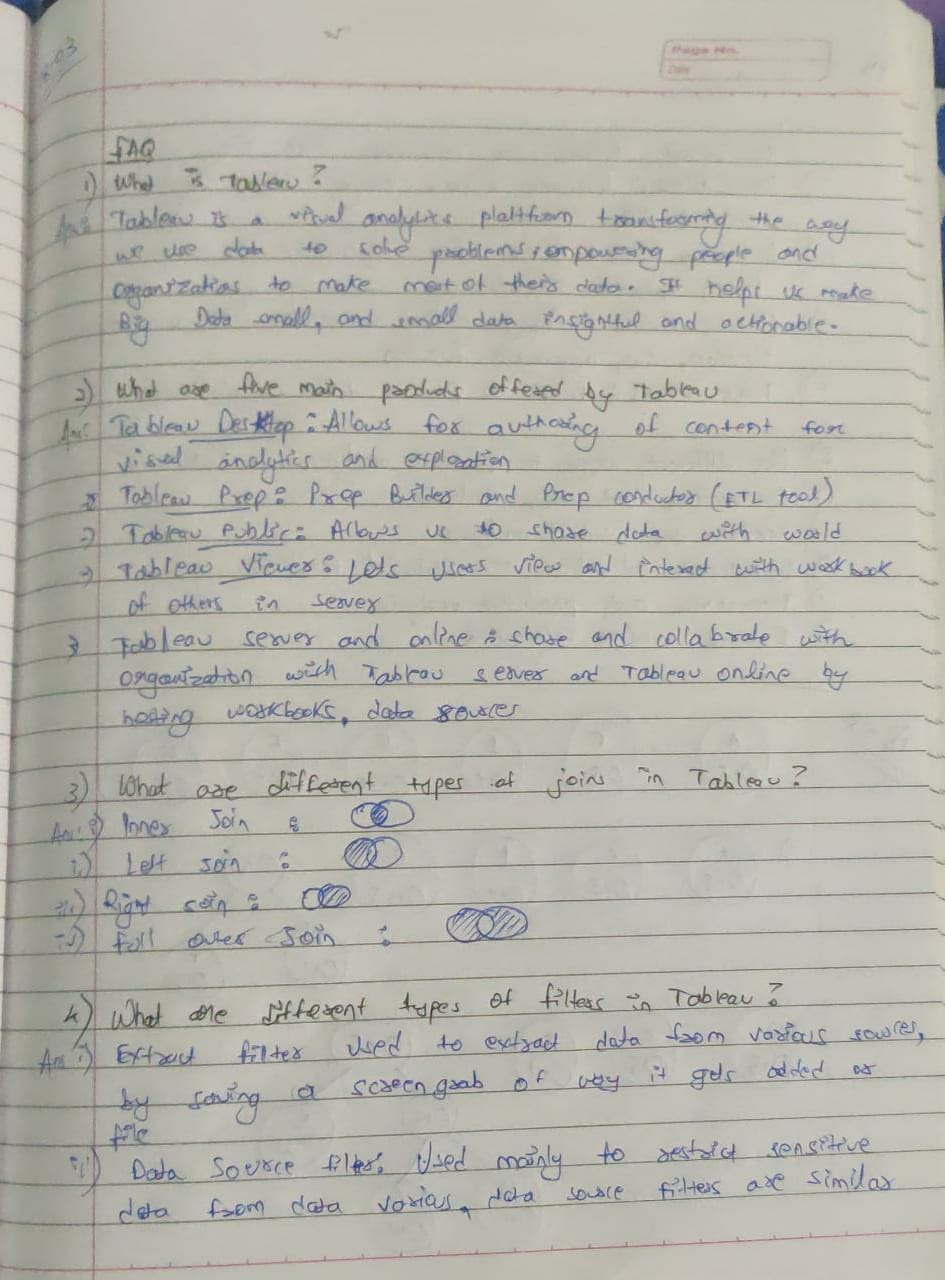 Page No.
Date
FAQ
1) What is Tableau?
Ans: Tableau is a visual analytics platform transforming the way
we use data to solve problems, empowering people and
organizations to make most of their data. It helps us make
Big Data small, and small data insightful and actionable.
2) What are five main products offered by Tableau
Ans: Tableau Desktop: Allows for authoring of content for
visual analytics and exploration
Tableau Prep: Prep Builder and Prep conductor (ETL tool)
Tableau Public: Allows us to share data with world
Tableau Viewer: Lets users view and interact with workbook
of others in server
Tableau server and online: share and collabrate with
organization with Tableau server and Tableau online by
hosting workbooks, data sources
3) What are different types of joins in Tableau?
Ans: i) Inner Join :
ii) Left Join :
iii) Right Join :
iv) Full outer Join :
4) What are different types of filters in Tableau?
Ans i) Extract filter Used to extract data from various sources,
by saving a screen grab of way it gets added as
file
ii) Data Source filter. Used mainly to restrict sensitive
data from data varias, data source filters are similar